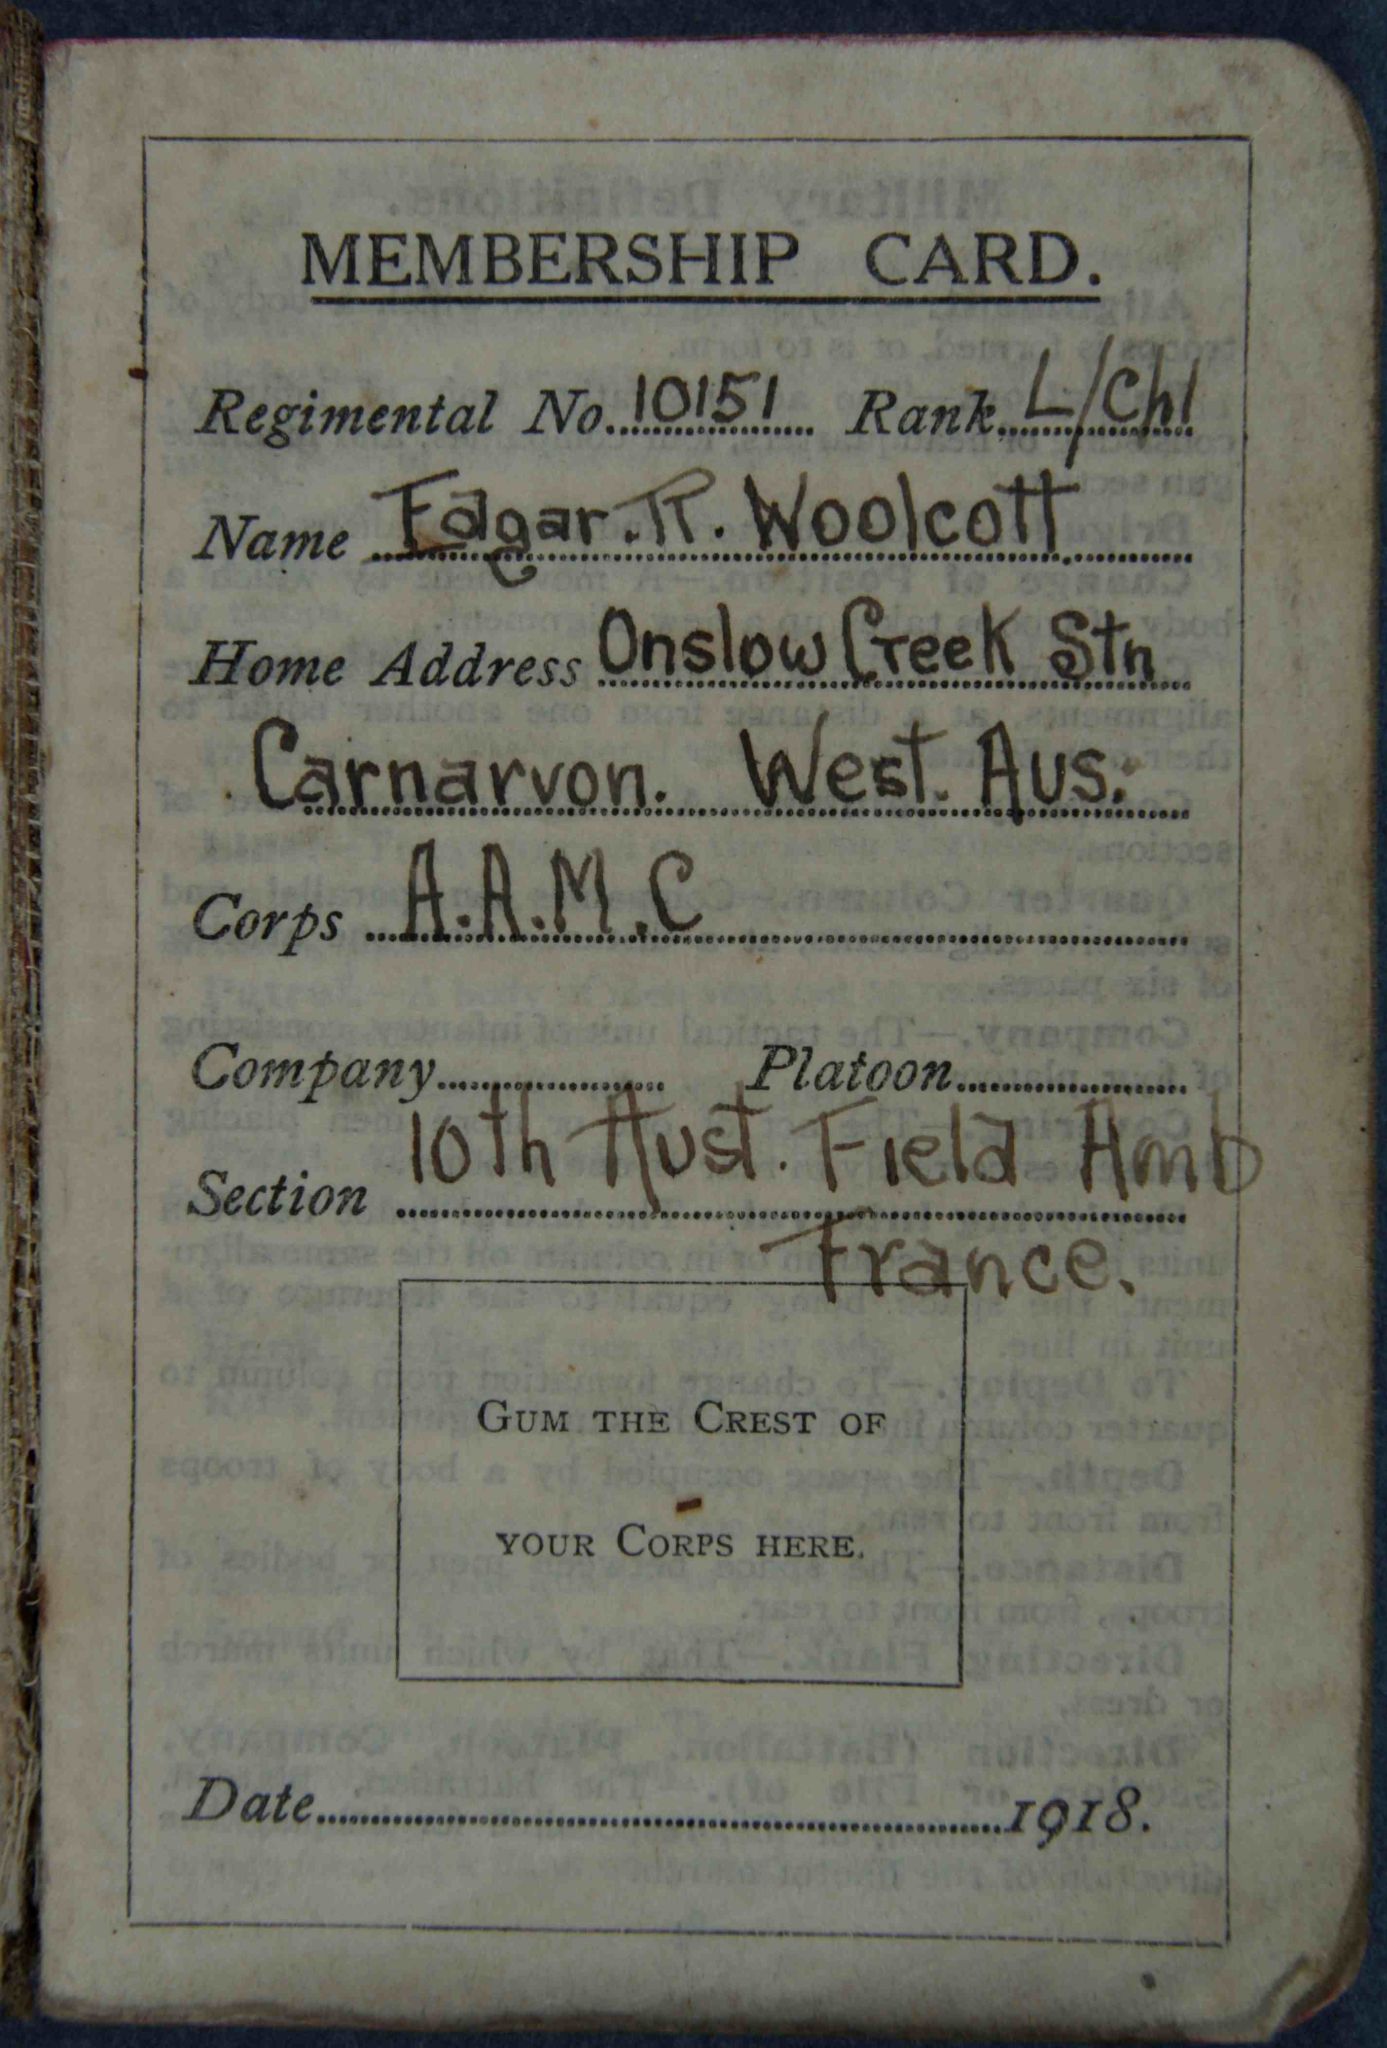 MEMBERSHIP CARD.
Regimental No. 10151 Rank L/Chl
Name Edgar. R. Woolcott
Home Address Onslow Creek Stn
Carnarvon. West. Aus.
Corps A.A.M.C
Company Platoon
10th Aust. Field Amb
Section
France.
GUM THE CREST OF
YOUR CORPS HERE.
Date 1918.